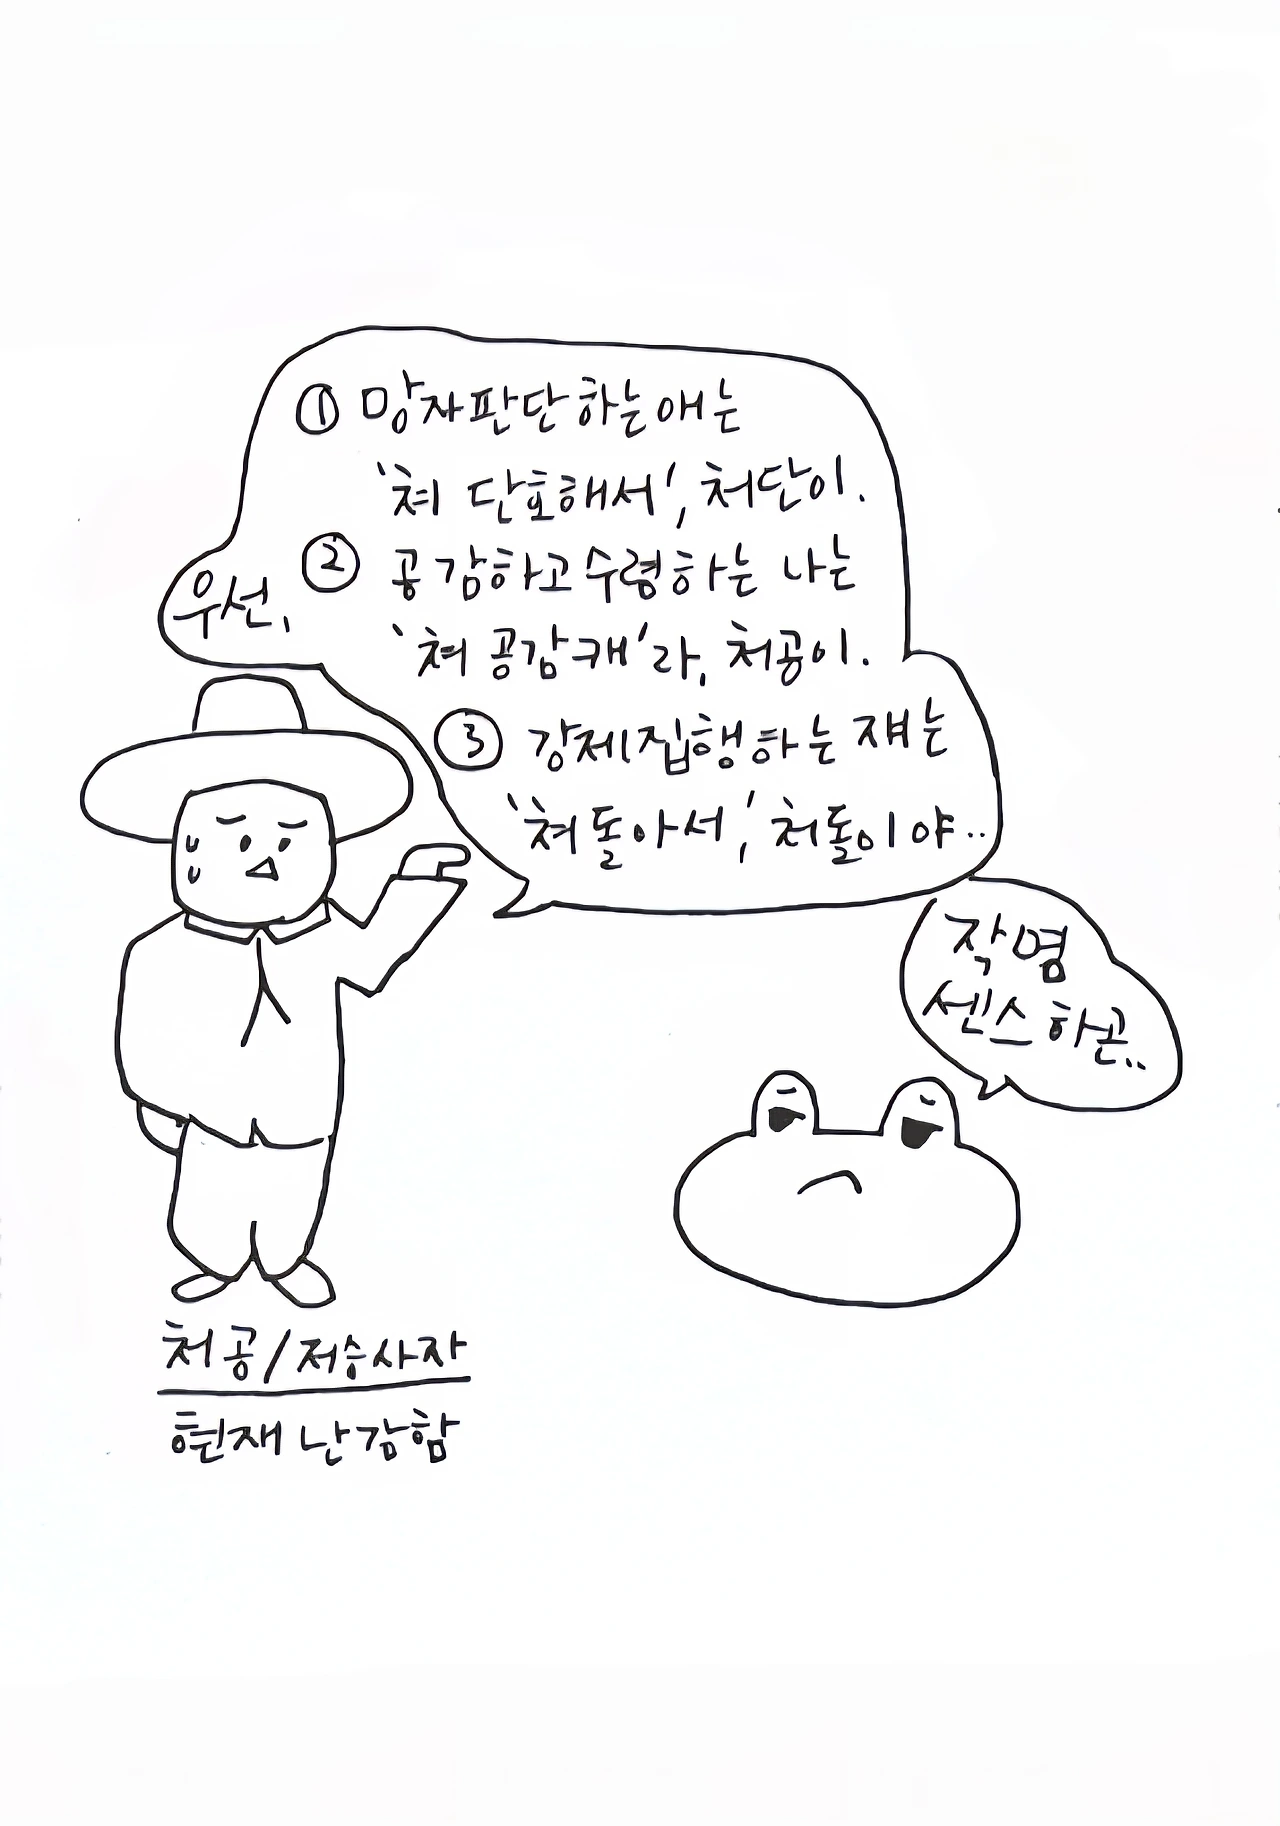 우선,
① 망자판단하는애는
'쳐 단호해서', 처단이.
② 공감하고수령하는 나는
'쳐 공감캐'라, 처공이.
③ 강제집행하는 쟤는
'쳐돌아서', 처돌이야..
작명
센스하곤..
처공/저승사자
현재 난감함